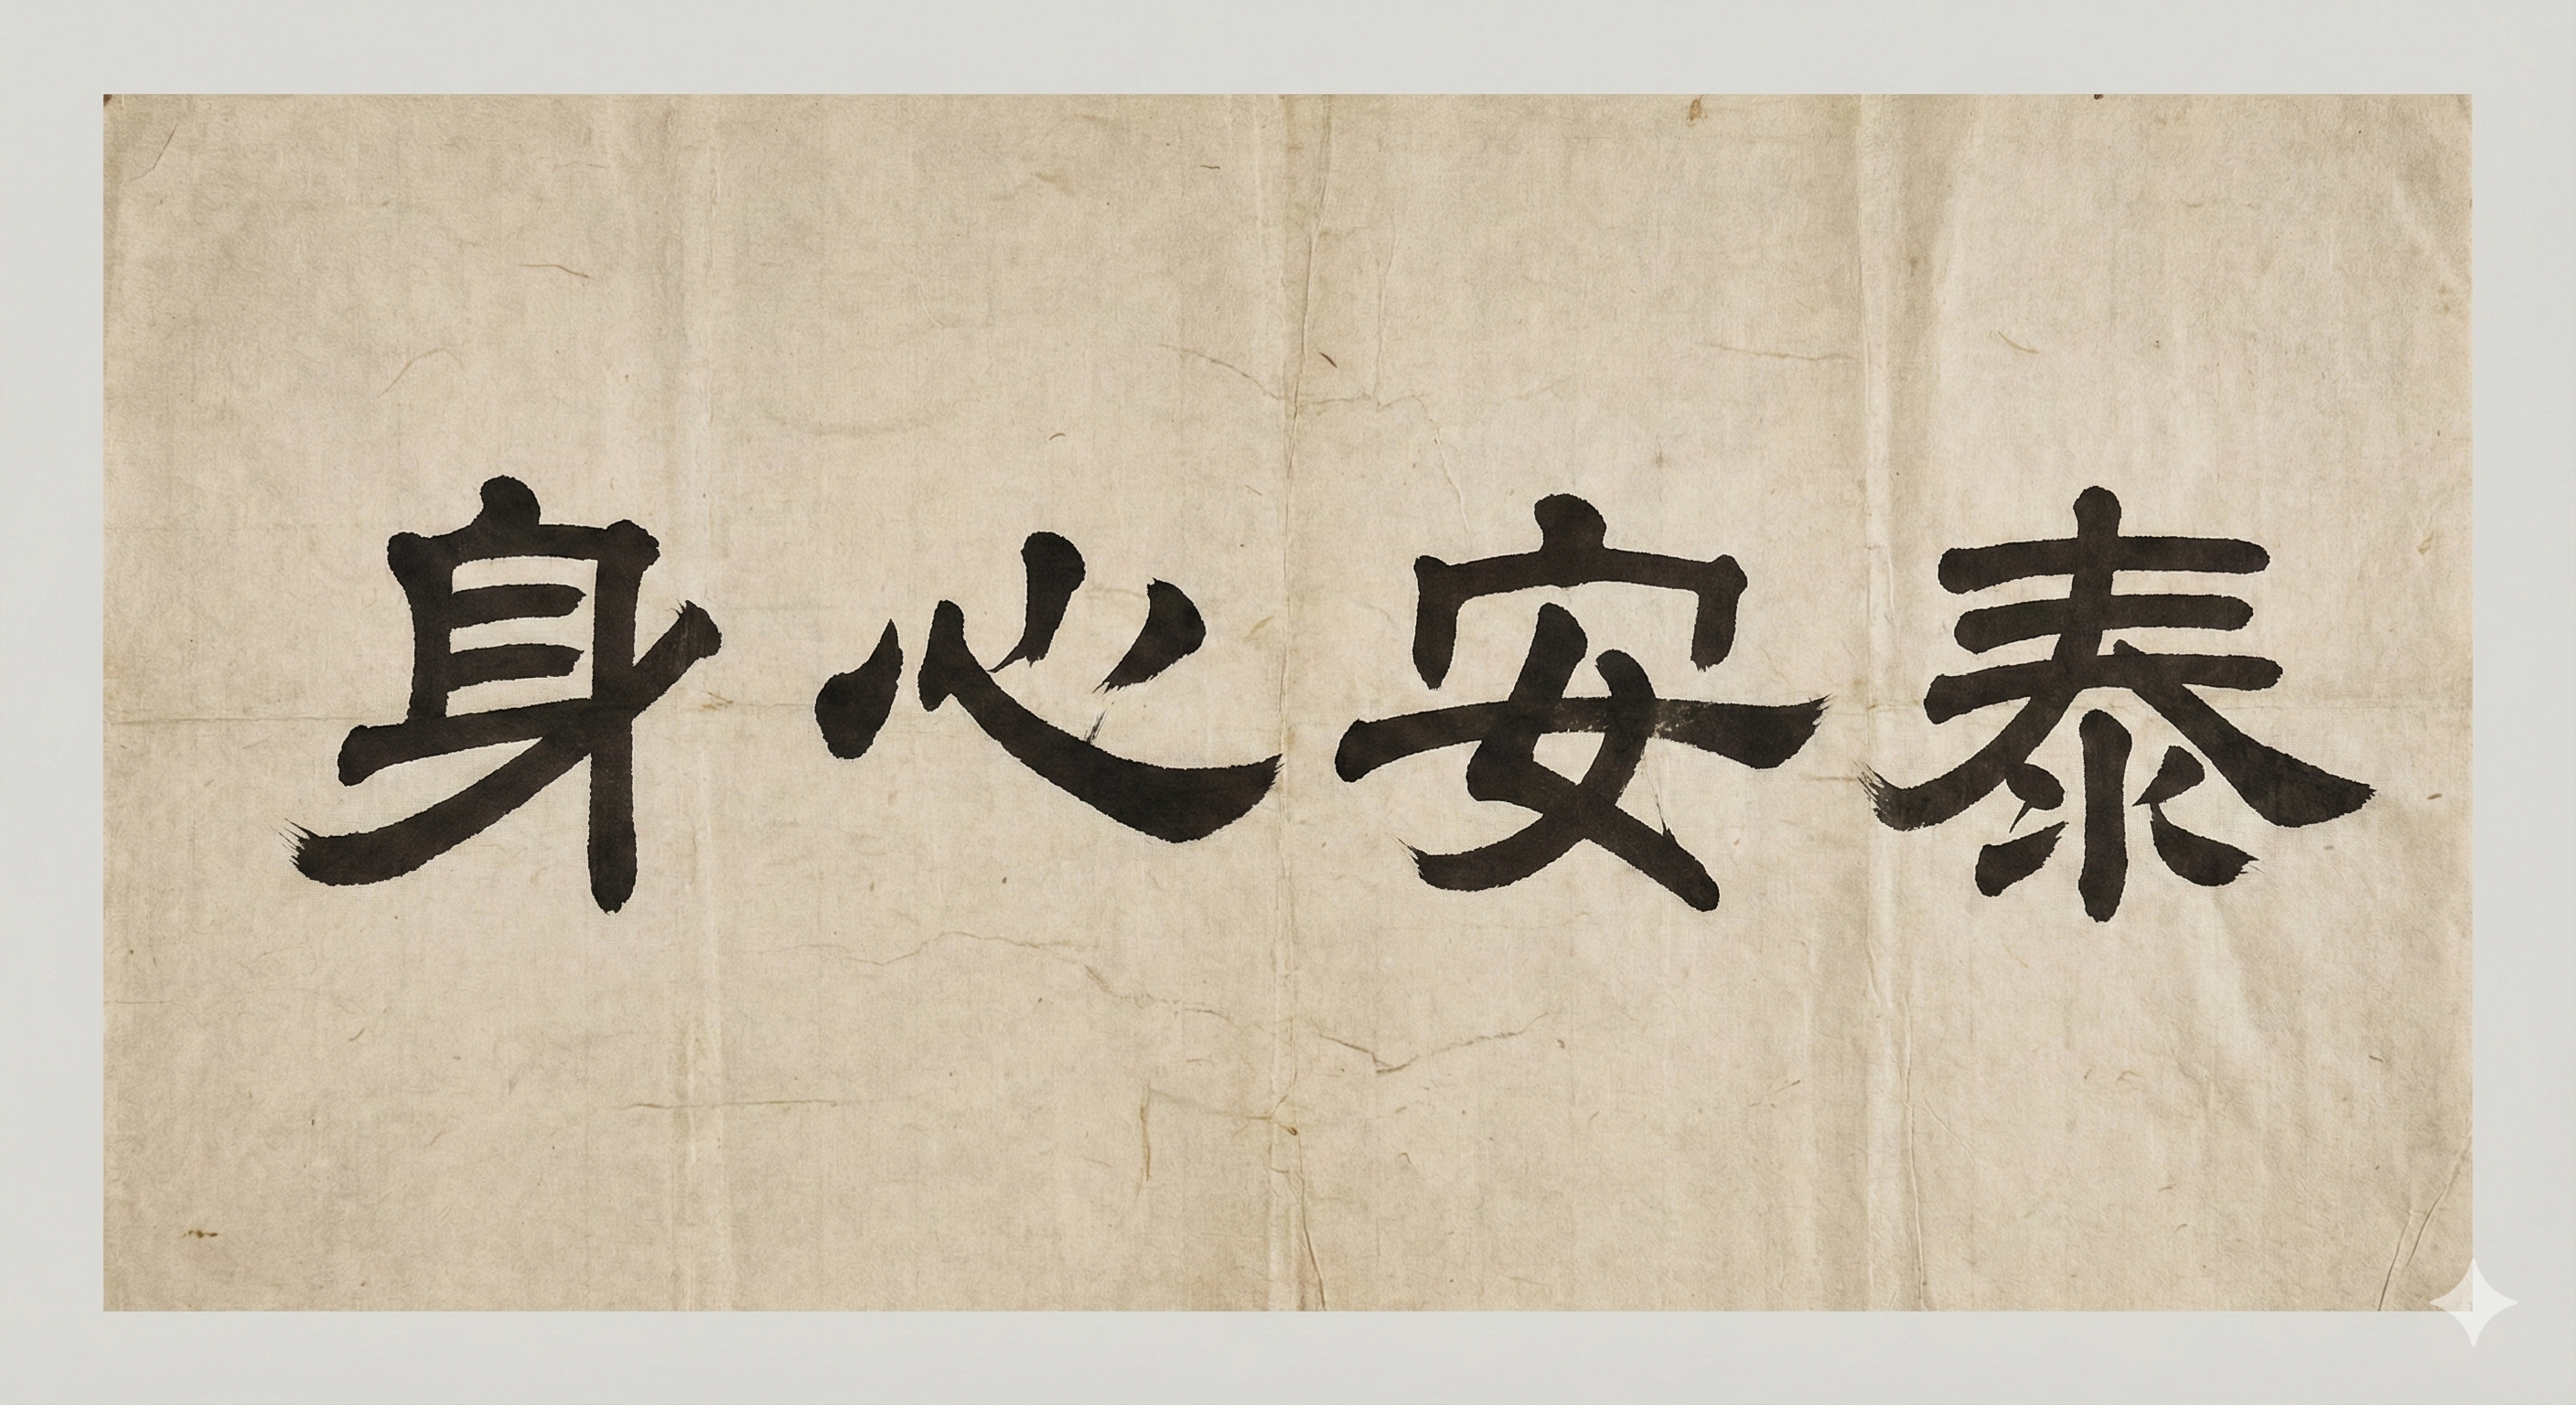 身心安泰